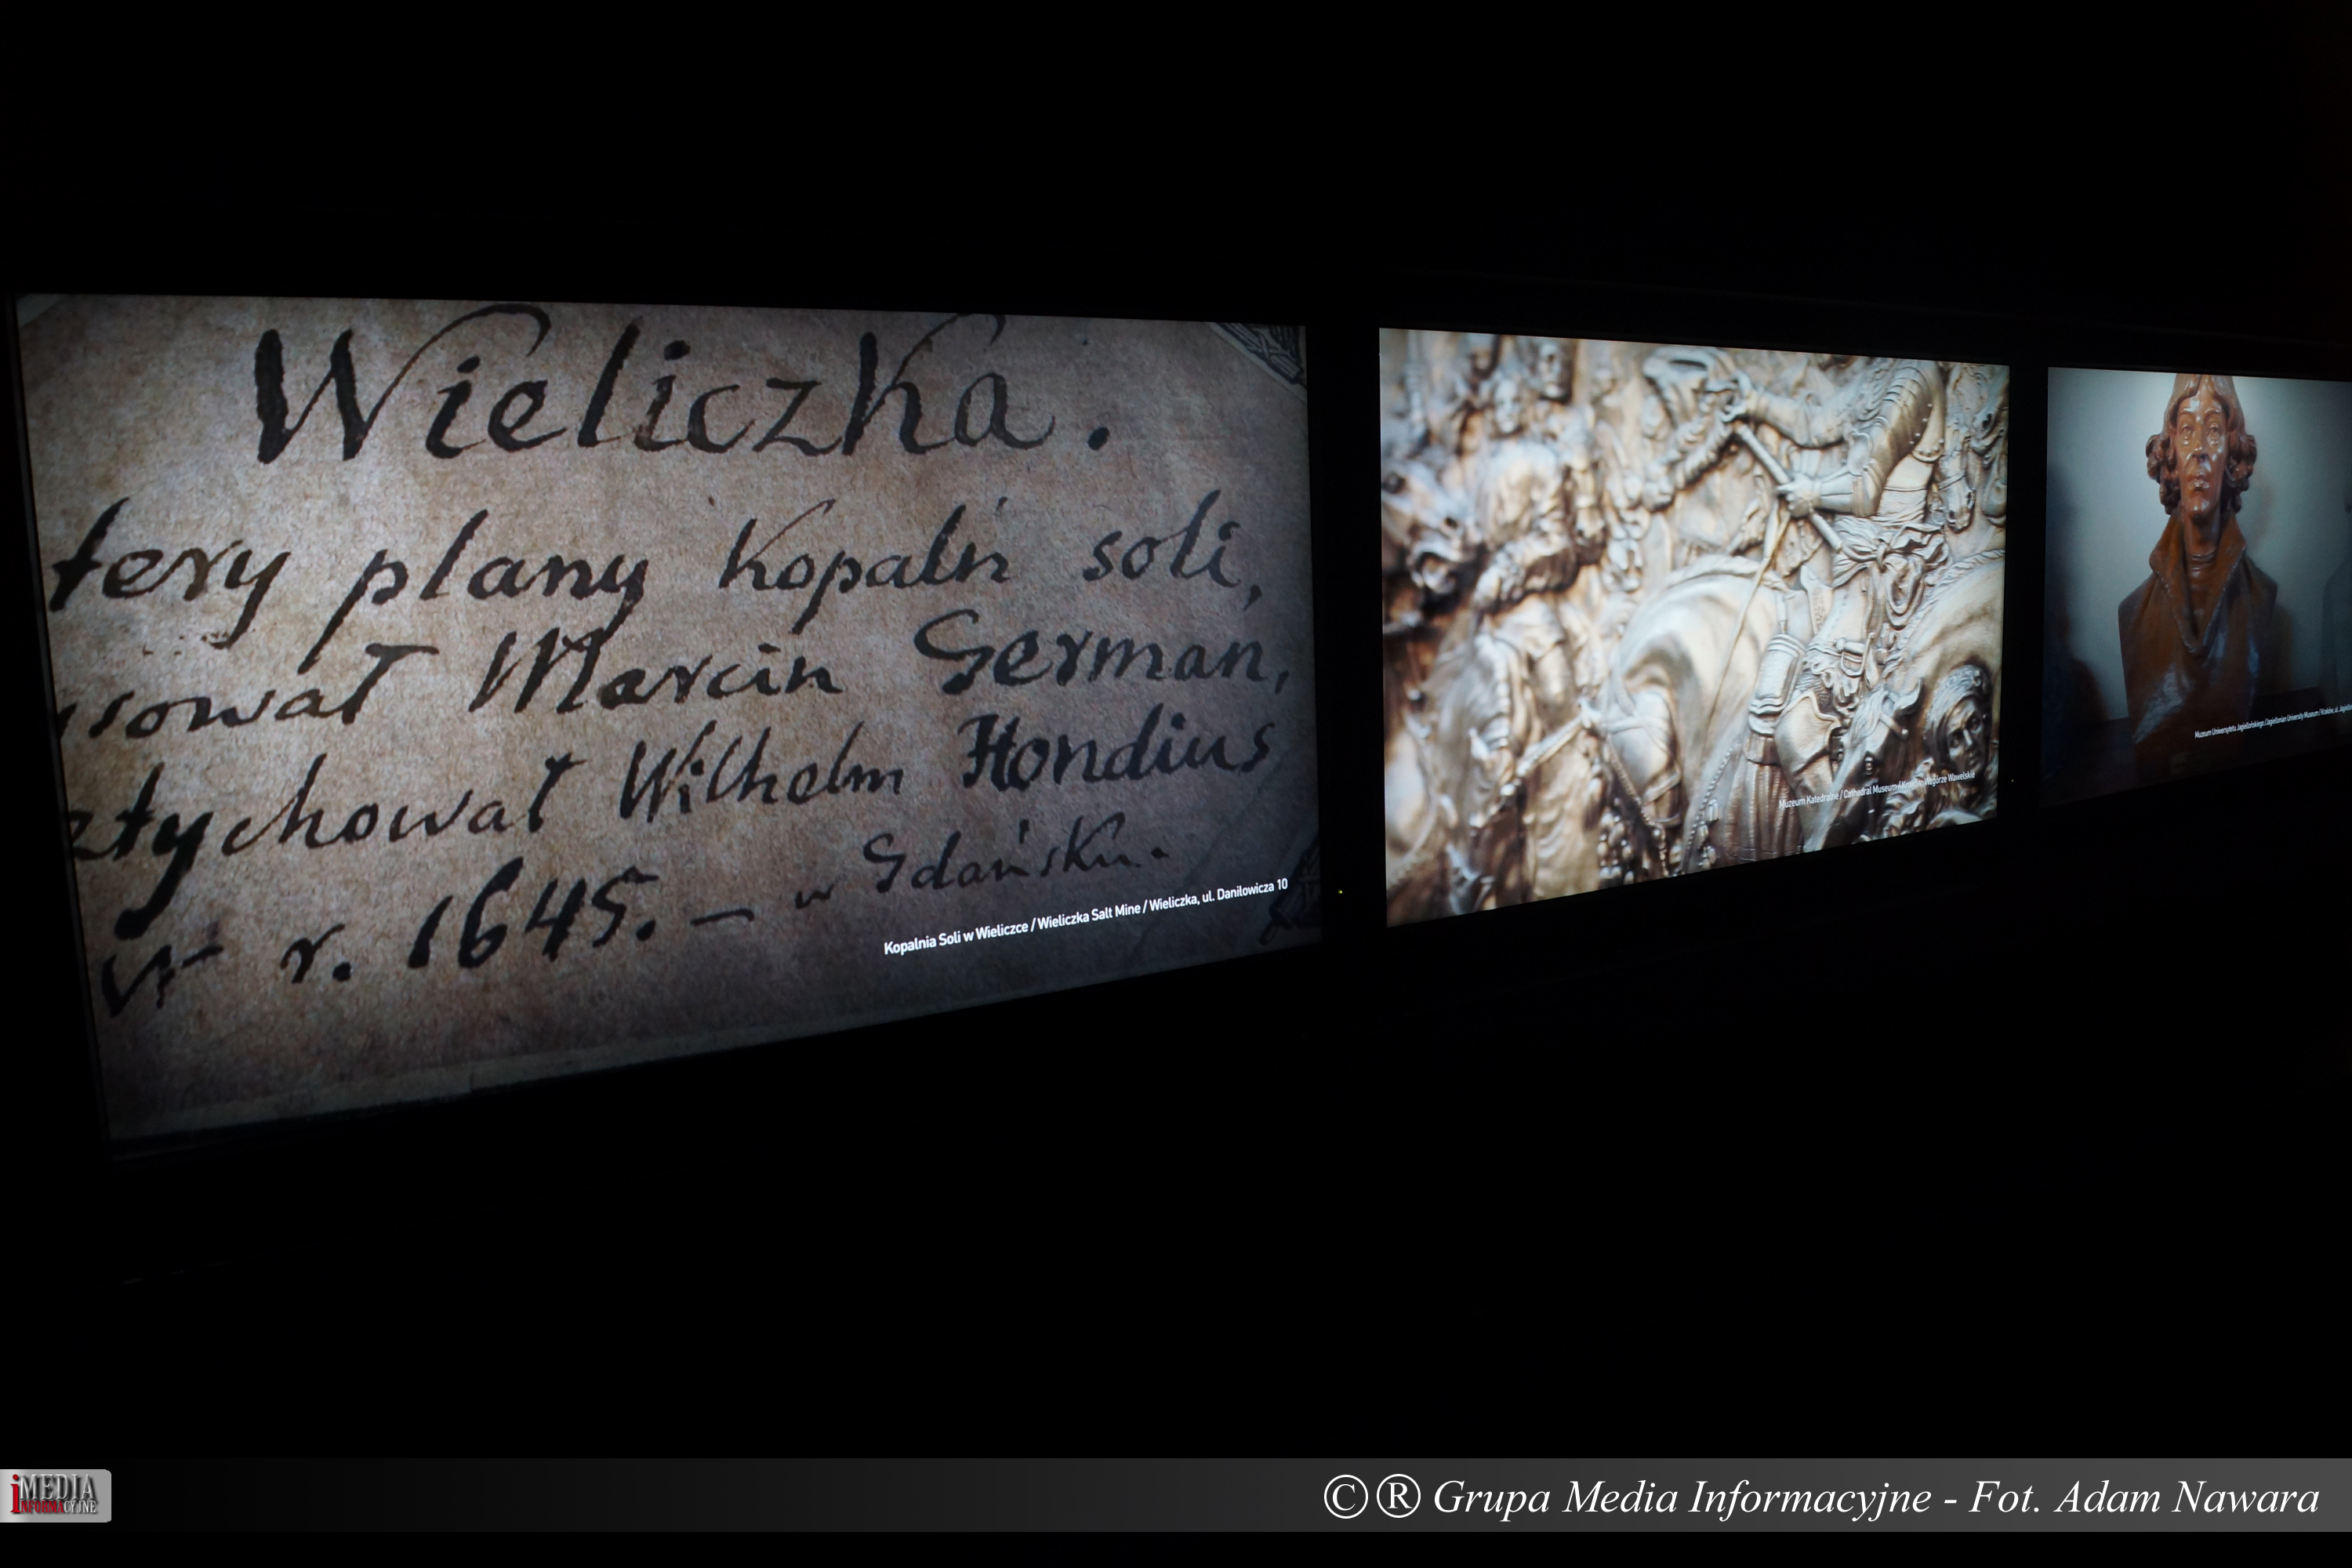 Wieliczka.
tery plany kopalń soli,
sował Marcin German,
sztychował Wilhelm Hondius
W r. 1645. – w Gdańsku.
Kopalnia Soli w Wieliczce / Wieliczka Salt Mine / Wieliczka, ul. Daniłowicza 10
Muzeum Katedralne / Cathedral Museum / Kraków, Wzgórze Wawelskie
Muzeum Uniwersytetu Jagiellońskiego / Jagiellonian University Museum / Kraków, ul. Jagiello
iMEDIA
INFORMACYJNE
©® Grupa Media Informacyjne - Fot. Adam Nawara